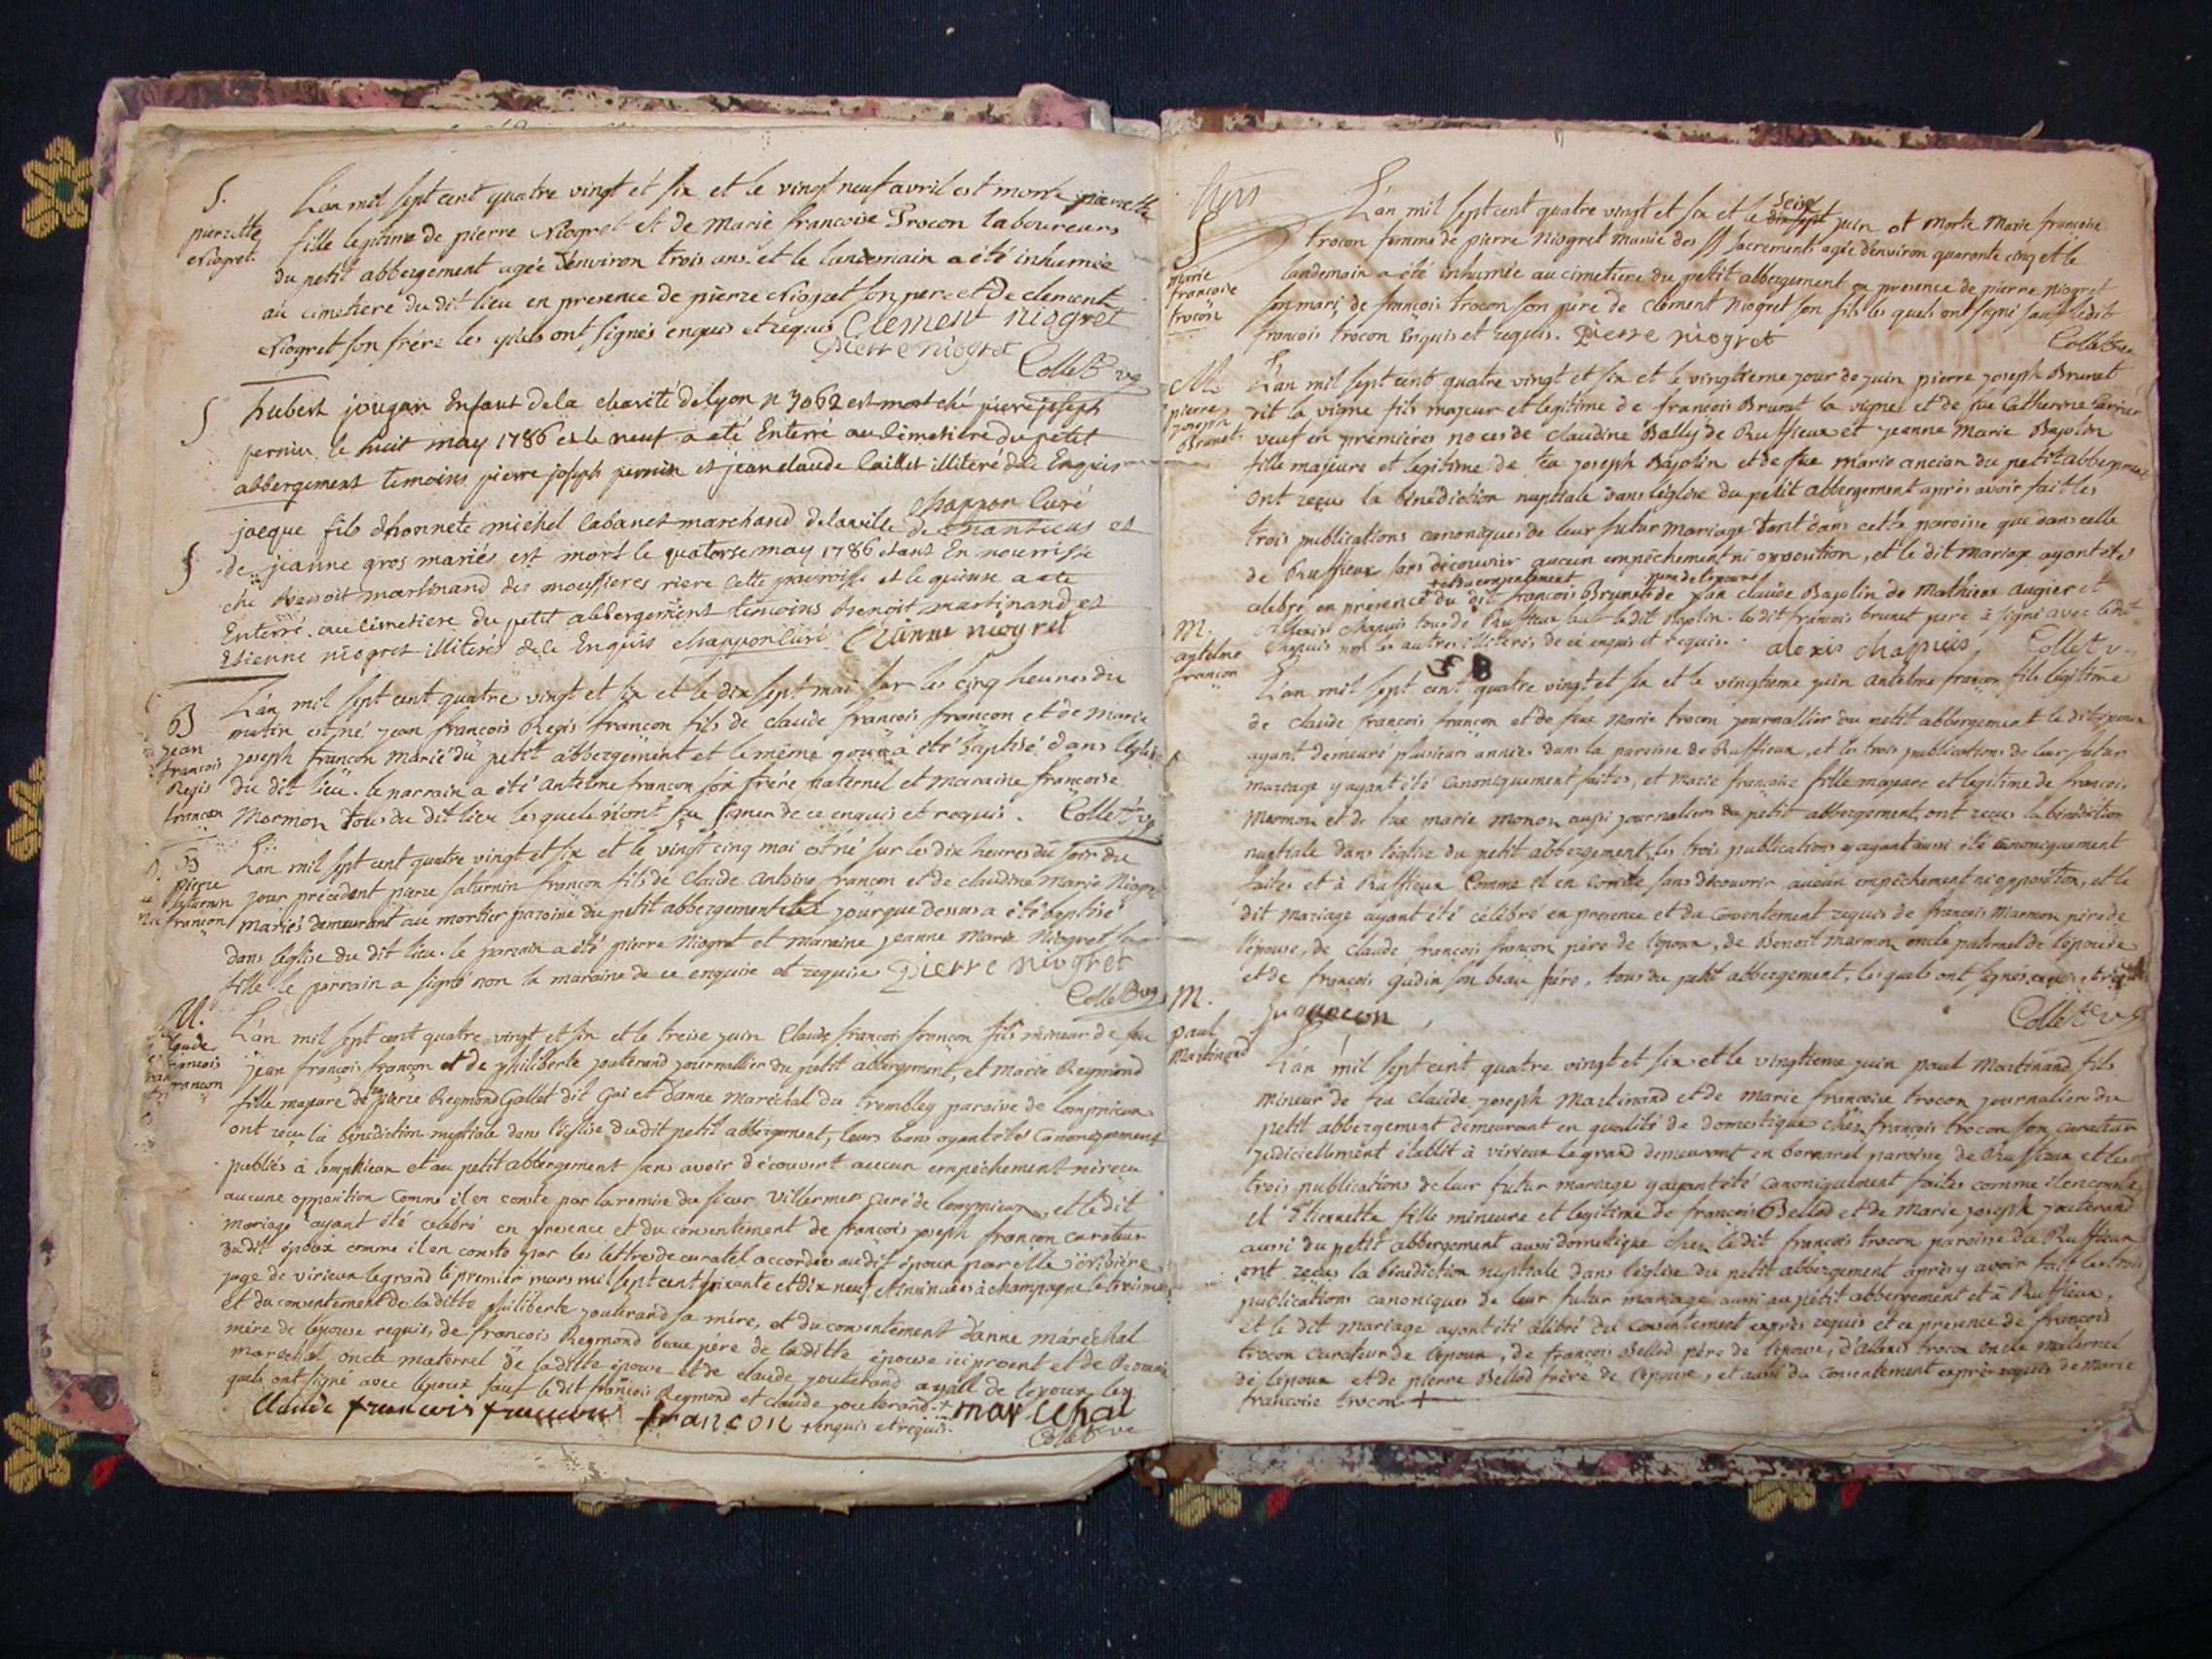 S.
pierrette
Niogret.
L'an mil sept cent quatre vingt et six et le vingt neuf avril est morte pierrette
fille legitime de pierre Niogret et de Marie francoise Trocon laboureurs
du petit abbergement agée d'environ trois ans et le landemain a été inhumée
au cimetiere du dit lieu en presence de pierre Niogret son pere et de clement
Niogret son frére les quels ont signés enquis et requis Clement niogret
Pierre niogret Collet v.
S
hubert jougan Enfant de la charité de lyon n 3062 est mort ché pierre joseph
pernin le huit may 1786 et le neuf a eté Enterré au cimetiere du petit
abbergement temoins pierre joseph pernin et jean claude Caillet illiteré de ce Enquis
chappon Curé
S
jacque fils d'honnete michel Cabanet marchand de la ville de Nantua et
de jeanne gros mariés est mort le quatorse may 1786 etant En nourrisse
ché Benoit martinand des moussieres riere cette parroisse et le quinse a eté
Enterré au cimetiere du petit abbergement temoins Benoit martinand et
Etienne niogret illiterés de ce Enquis chappon curé Etienne niogret
B
jean
francois
Regis
francon
L'an mil sept cent quatre vingt et six et le dix sept mai sur les cinq heures du
matin est né jean francois Regis francon fils de claude francois francon et de marie
joseph francon Marié du petit abbergement et le même jour a été baptisé dans l'église
du dit lieu. le parrain a été antelme francon son frére paternel et maraine francoise
Marmon tous du dit lieu les quels n'ont su signer de ce enquis et requis. Collet v.
B
pierre
saturnin
francon
L'an mil sept cent quatre vingt et six et le vingt cinq mai est né sur les dix heures du soir du
jour précédent pierre saturnin francon fils de claude antoine francon et de claudine Marie Niogret
mariés demeurant au mortier paroisse du petit abbergement et le jour que dessus a été baptisé
dans l'eglise du dit lieu. le parrain a été pierre Niogret et maraine jeanne Marie Niogret sa
fille. le parrain a signé non la maraine de ce enquise et requise Pierre niogret
Collet v.
M.
claude
francois
francon
L'an mil sept cent quatre vingt et six et le treise juin Claude francois francon fils mineur de feu
jean francois francon et de philiberte jouterand journallier du petit abbergement, et marie Reymond
fille majeure de feu pierre Reymond Gallet dit Gai et d'anne maréchal du trembley paroisse de lompnieux
ont reçu la bénédiction nuptiale dans l'église du dit petit abbergement, leurs bans ayant été canoniquement
publiés à lompnieux et au petit abbergement sans avoir découvert aucun empêchement ni reçu
aucune opposition comme il en conste par la remise du sieur Villermet curé de lompnieux, et le dit
mariage ayant été celebré en presence et du consentement de francois joseph francon curateur
du dit époux comme il en conste par les lettres de curatel accordées au dit époux par
juge de virieu le grand le premier mars mil sept cent soixante et dix neuf et insinuées à champagne le trois mars,
et du consentement de la ditte philiberte jouterand sa mére, et du consentement d'anne maréchal
mére de l'épouse requis, de francois Reymond beau pére de la ditte épouse ici present et de Romain
maréchal oncle maternel de la ditte épouse et de claude jouterand ayeul de l'epoux les
quels ont signé avec l'époux sauf le dit francois Reymond et claude jouterand. +
Claude francois francon francon + enquis et requis. marechal
Collet v.
S
marie
francoise
trocon
L'an mil sept cent quatre vingt et six et le dix sept seize juin est morte Marie francoise
trocon femme de pierre Niogret munie des SS sacrements agée d'environ quarante cinq et le
landemain a été inhumée au cimetiere du petit abbergement en presence de pierre niogret
son mari, de francois trocon son pére de clement Niogret son fils les quels ont signé sauf ledit
francois trocon Enquis et requis. Pierre niogret
Collet v.
M.
pierre
joseph
Brunet
L'an mil sept cent quatre vingt et six et le vingtieme jour de juin pierre joseph Brunet
dit la vigne fils majeur et legitime de francois Brunet la vigne et de fue Catherine
veuf en premiéres noces de claudine Bally de Ruffieux et jeanne Marie Bajolin
fille majeure et legitime de feu joseph Bajolin et de fue marie ancian du petit abbergement
ont reçus la bénédiction nuptiale dans l'église du petit abbergement aprés avoir fait les
trois publications canoniques de leur futur mariage tant dans cette paroisse que dans celle
de Ruffieux sans découvrir aucun empêchement ni opposition, et le dit mariage ayant été
+ et du consentement pere de l'epoux
célebré en présence du dit francois Brunet de jean claude Bajolin de Mathieux augier et
d'Alexis chapuis tous de Ruffieux sauf le dit Bajolin. le dit francois brunet pere a signé avec ledit
chapuis non les autres illiterés, de ce enquis et requis. alexis chapuis Collet v.
F B
M.
antelme
francon
L'an mil sept cent quatre vingt et six et le vingtieme juin antelme francon fils légitime
de claude francois francon et de feue Marie trocon journallier du petit abbergement le dit époux
ayant demeuré plusieurs années dans la paroisse de Ruffieux, et les trois publications de leur futur
mariage y ayant été canoniquement faites, et Marie francoise fille majeure et legitime de francois
Marmon et de fue marie monon aussi journaliers du petit abbergement, ont reçus la bénédiction
nuptiale dans l'église du petit abbergement, les trois publications y ayant aussi été canoniquement
faites et à Ruffieux comme il en conste sans découvrir aucun empêchement ni opposition, et le
dit mariage ayant été célébré en presence et du consentement requis de francois Marmon pére de
l'épouse, de claude francois francon pére de l'époux, de Benoit marmon oncle paternel de l'épouse
et de francois gudin son beau frére, tous du petit abbergement, les quels ont signés enquis et requis
Collet v.
M.
paul
Martinand
L'an mil sept cent quatre vingt et six et le vingtieme juin paul Martinand fils
mineur de feu claude joseph Martinand et de marie francoise trocon journaliers du
petit abbergement demeurant en qualité de domestique chés francois trocon son curateur
judiciellement établit à virieux le grand demeurant en bornarel paroisse de Ruffieux et les
trois publications de leur futur mariage y ayant été canoniquement faites comme il en conste,
et Etiennette fille mineure et legitime de francois Bellod et de Marie joseph jouterand
aussi du petit abbergement aussi domestique chez le dit francois trocon paroisse de Ruffieux
ont reçus la bénédiction nuptiale dans l'église du petit abbergement aprés y avoir fait les trois
publications canoniques de leur futur mariage aussi au petit abbergement et à Ruffieux,
et le dit mariage ayant été célébré du consentement exprés requis et en presence de francois
trocon curateur de l'époux, de francois Bellod pére de l'épouse, d'alexis trocon oncle maternel
de l'époux et de pierre Bellod frére de l'épouse, et aussi du consentement exprés requis de marie
francoise trocon +